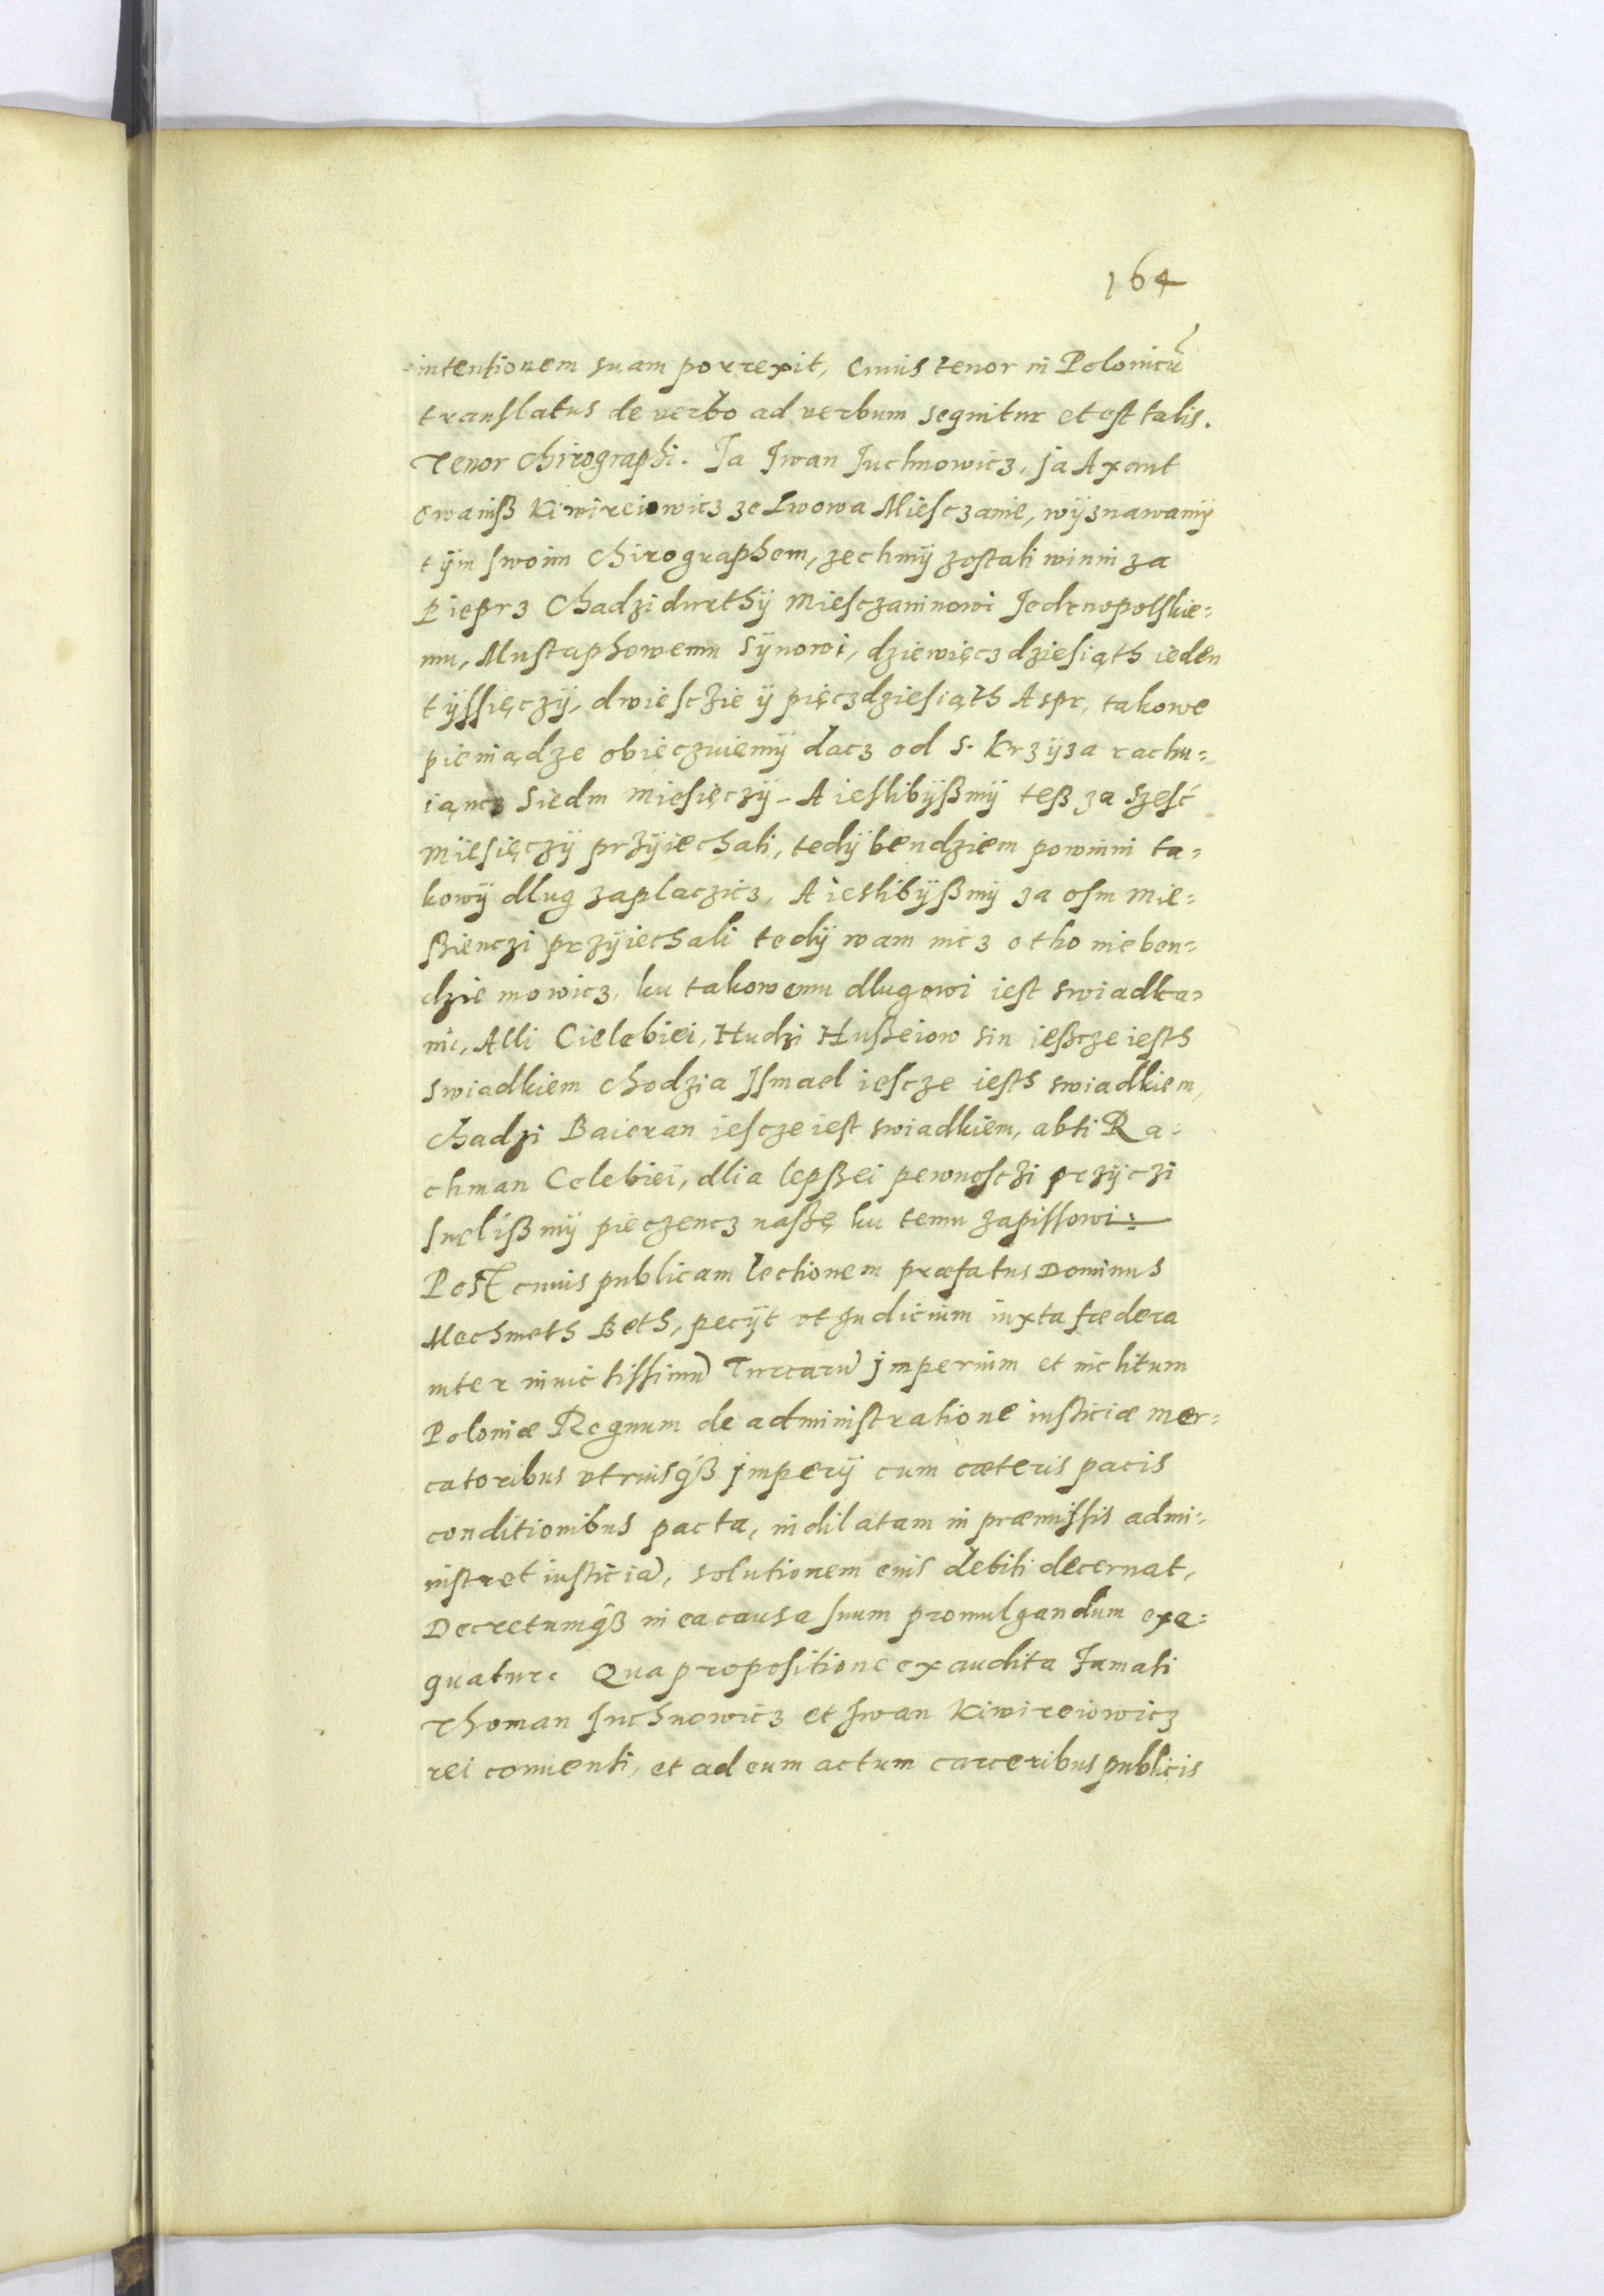 164
intentionem suam porrexit, cuius tenor in Polonicũ
translatus de verbo ad verbum sequitur et est talis.
Tenor chirographi. Ja Iwan Juchnowicz, ja Axent
Owaniß Kiwireiowicz ze Lwowa Miesczanie, wÿznawamÿ
tÿm swoim chirographem, zechmÿ zostali winni za
Pieprz Chadzidurthÿ Miesczaninowi Jedrnopolskie=
mu, Mustaphowemu Sÿnowi, dziewięczdziesiąth ieden
tÿssięczÿ, dwiesczie ÿ pięczdziesiąth Aspr, takowe
pieniądze obieczuiemÿ dacz od S. Krzÿza rachu=
iąncz Siedm Miesięczÿ - A ieslibÿßmÿ teß za Szesć
Miesięczÿ przÿiechali, tedÿ bendziem powinni ta=
kowÿ dlug zaplaczicz, A ieslibÿßmÿ za osm Mie=
ßienczi przÿiechali tedÿ wam nicz otho nie ben=
dzie mowicz, ku takowemu dlugowi iest swiadka=
mi, Alli Cielebiei, Hudzi Hußeiow sin ießcze iesth
swiadkiem chodzia Ismael iescze iesth swiadkiem,
chadzi Baieran iescze iest swiadkiem, abti Ra=
chman Celebiei, dlia lepßei pewnosczi przÿczi
snęlißmÿ pieczencz naßę ku temu zapissowi
Post cuius publicam lectionem præfatus Dominus
Mechmeth Beth, petÿt vt Iudicium iuxta fœdera
inter inuictissimũ Turcarũ jmperium et inclitum
Poloniæ Regnum de administratione iusticiæ mer=
catoribus vtriusqß jmperÿ cum cæteris pacis
conditionibus pacta, indilatam in præmissis admi=
nistret iusticiã, solutionem eius debiti decernat,
Decretumqß in ea causa suum promulgandum exe=
quatur. Qua propositione exaudita famati
Thoman Juchnowicz et Iwan Kiwireiowicz
rei conuenti, et ad eum actum carceribus publicis